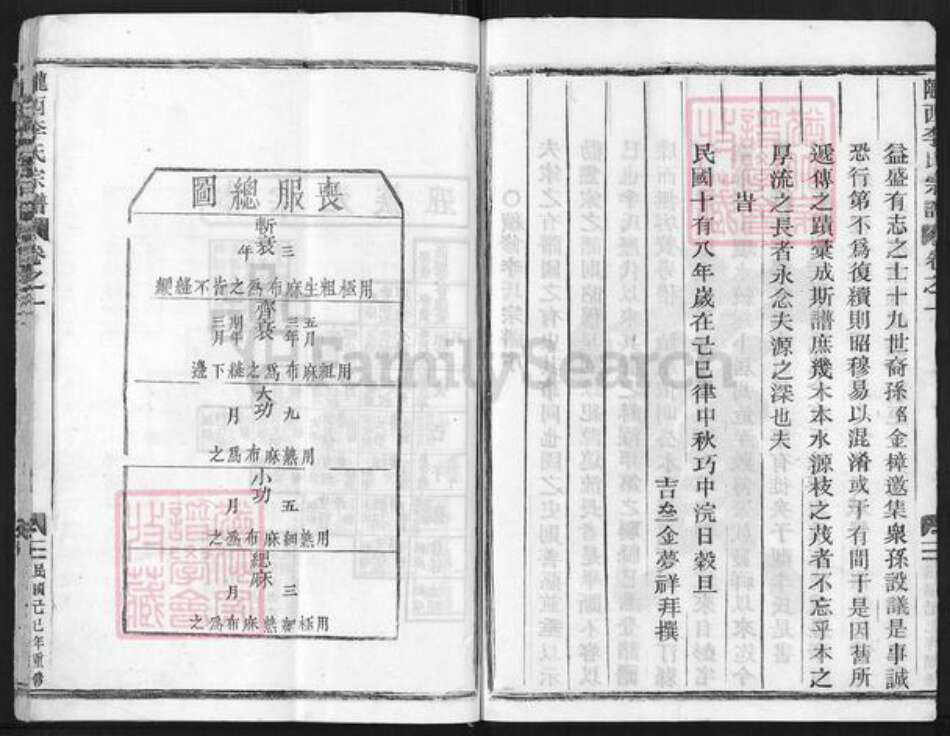 隴西李氏宗譜 卷之一
益盛有志之士十九世裔孫紹金樟邀集衆孫設議是事誠
恐行第不爲復續則昭穆易以混淆或于有間于是因舊所
遞傳之蹟彙成斯譜庶幾木本水源枝之茂者不忘乎本之
厚流之長者永念夫源之深也夫
旹
民國十有八年歲在己巳律中秋巧中浣日穀旦
吉垒金夢祥拜撰
喪服總圖
斬衰
三年
用極粗生麻布爲之皆不縫緶
齊衰
五月 三年
期年 三月
用粗麻布爲之縫下邊
大功
九月
用熟麻布爲之
小功
五月
用熟細麻布爲之
緦麻
三月
用極細熟麻布爲之
隴西李氏宗譜 卷之一
民國己巳年重修
FamilySearch